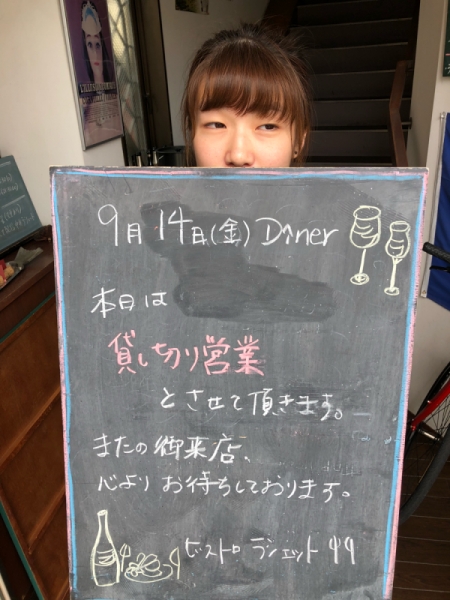 9月14日(金) Dinner
本日は
貸し切り営業
とさせて頂きます。
またの御来店、
心よりお待ちしております。
ビストロ ランコット